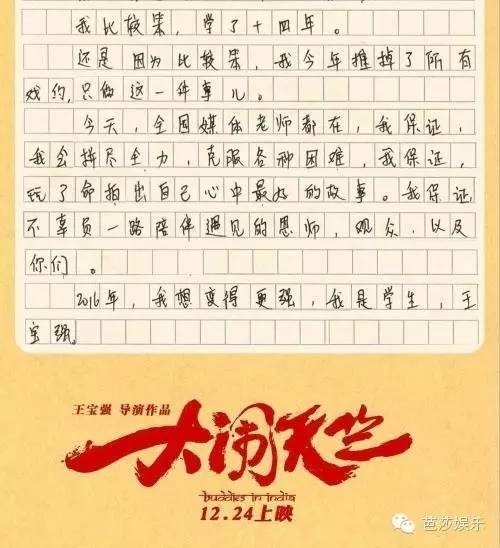 我比较笨，学了十四年。
还是因为比较笨，我今年推掉了所有
戏约，只做这一件事儿。
今天，全国媒体老师都在，我保证，
我会拼尽全力，克服各种困难，我保证，
玩了命拍出自己心中最好的故事。我保证
不辜负一路陪伴遇见的恩师，观众，以及
你们。
2016年，我想变得更强，我是学生，王
宝强。
王宝强 导演作品
大闹天竺
buddies in india
12.24上映
芭莎娱乐